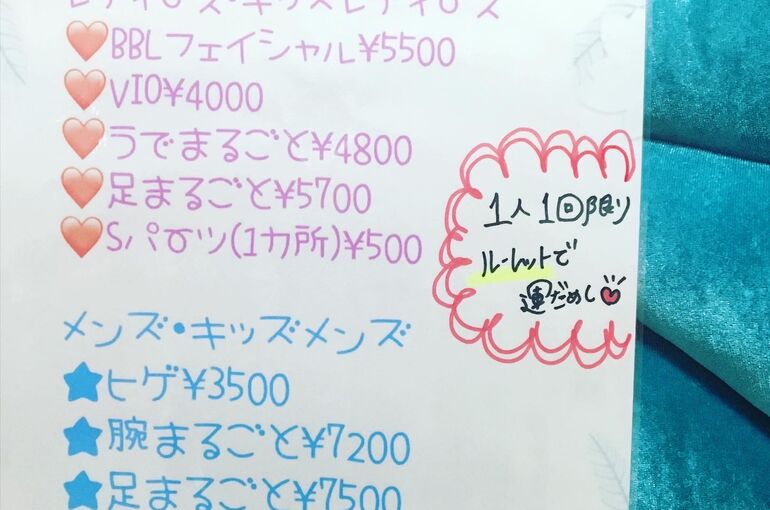 レディース・キッズレディース
BBLフェイシャル¥5500
VIO¥4000
うでまるごと¥4800
足まるごと¥5700
Sパーツ(1カ所)¥500
1人1回限り
ルーレットで
運だめし
メンズ・キッズメンズ
ヒゲ¥3500
腕まるごと¥7200
足まるごと¥7500